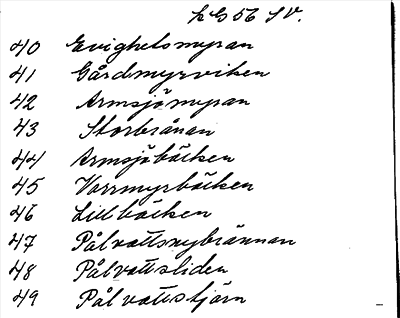 LG 56 SV.
40 Evighetsmyran
41 Gårdmyrviken
42 Armsjömyran
43 Storbrånan
44 Armsjöbäcken
45 Vorrmyrbäcken
46 Lillbäcken
47 Pålvattsnybrännan
48 Pålvattsliden
49 Pålvattstjärn